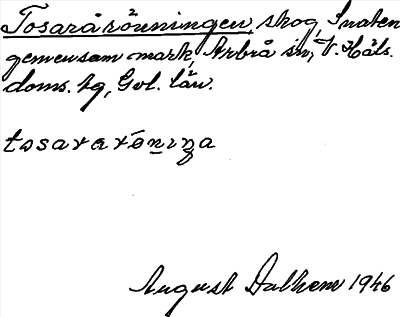 Tosaråröunningen, skog, Snaten
gemensam mark, Arbrå sn, V. Häls.
doms. tg, Gvl. län.
tosararöniŋa
August Dalhem 1946